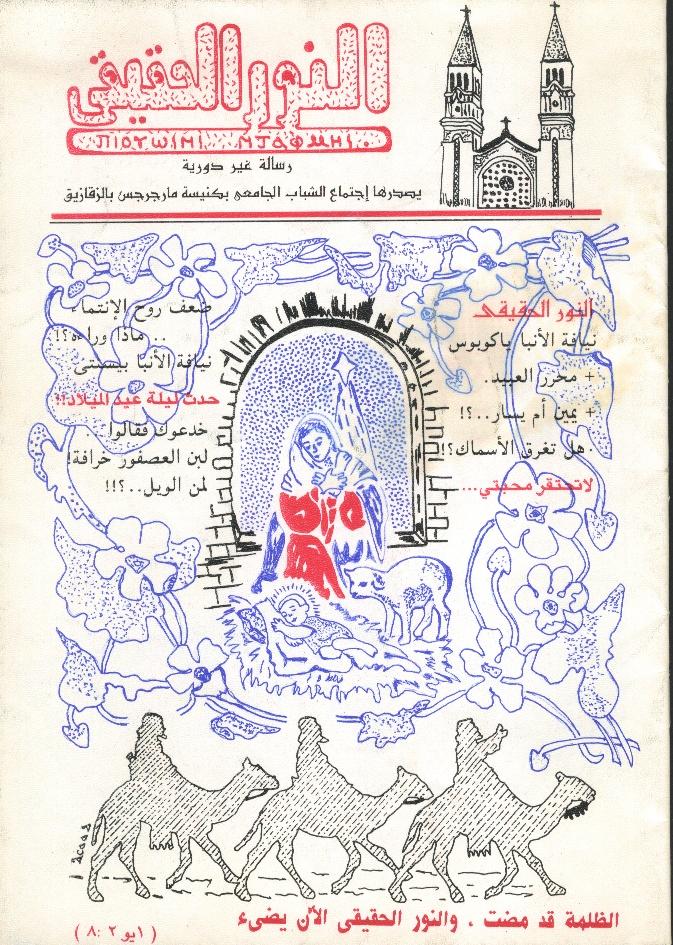 النور الحقيقى
ⲠⲒⲞⲨⲰⲒⲚⲒ ⲚⲦⲀⲪⲘⲎⲒ
رسالة غير دورية
يصدرها إجتماع الشباب الجامعى بكنيسة مارجرجس بالزقازيق
النور الحقيقى
نيافة الأنبا ياكوبوس
+ محرر العبيد.
+ يمين أم يسار..؟!
هل تغرق الأسماك؟!
لاتحتقر محبتي...
ضعف روح الإنتماء
.. ماذا وراءه؟!
نيافة الأنبا بيسنتى
حدث ليلة عيد الميلاد!!
خدعوك فقالوا
لبن العصفور خرافة!
لمن الويل..؟!!
الظلمة قد مضت ، والنور الحقيقى الآن يضىء
( ١يو ٢ :٨ )